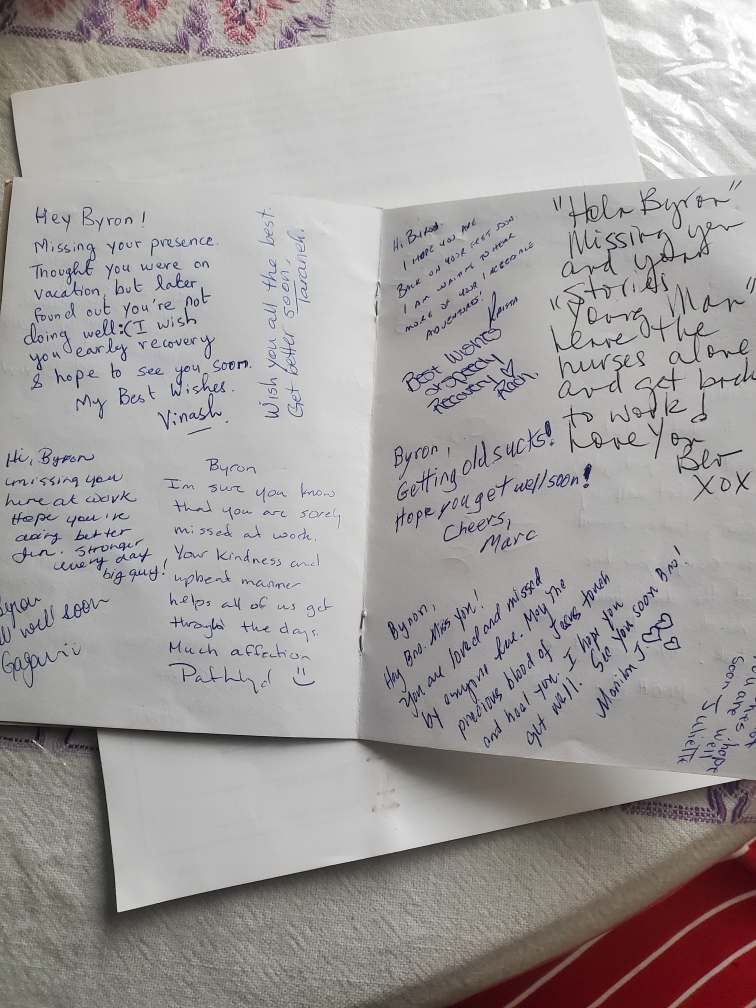 Hey Byron!
Missing your presence.
Thought you were on
vacation, but later
found out you're not
doing well:( I wish
you early recovery
& hope to see you soon.
My Best Wishes.
Vinash
Wish you all the best.
Get better soon,
Taraneh.
Hi, Byron
missing you
here at work
Hope you're
doing better
Stronger
every day
big guy!
Byron
well soon
Gagan
Byron
I'm sure you know
that you are sorely
missed at work.
Your kindness and
upbeat manner
helps all of us get
throught the days.
Much affection
Hi Byron
I HOPE YOU ARE
BACK ON YOUR FEET SOON.
I AM WAITING TO HEAR
MORE OF YOUR
ADVENTURES!
Best Wishes
Speedy
Recovery
"Hola Byron"
Missing you
and your
"stories"
"Young Man"
leave the
nurses alone
and get back
to work!
Love You
Bev
XOX
Byron,
Getting old sucks!
Hope you get well soon!
Cheers,
Marc
Byron,
Hey Bro. Miss you!
You are loved and missed
by everyone here. May the
precious blood of Jesus touch
and heal you. I hope you
get well. See you soon Bro!
Marilou J
hope
you are well
soon Juliett